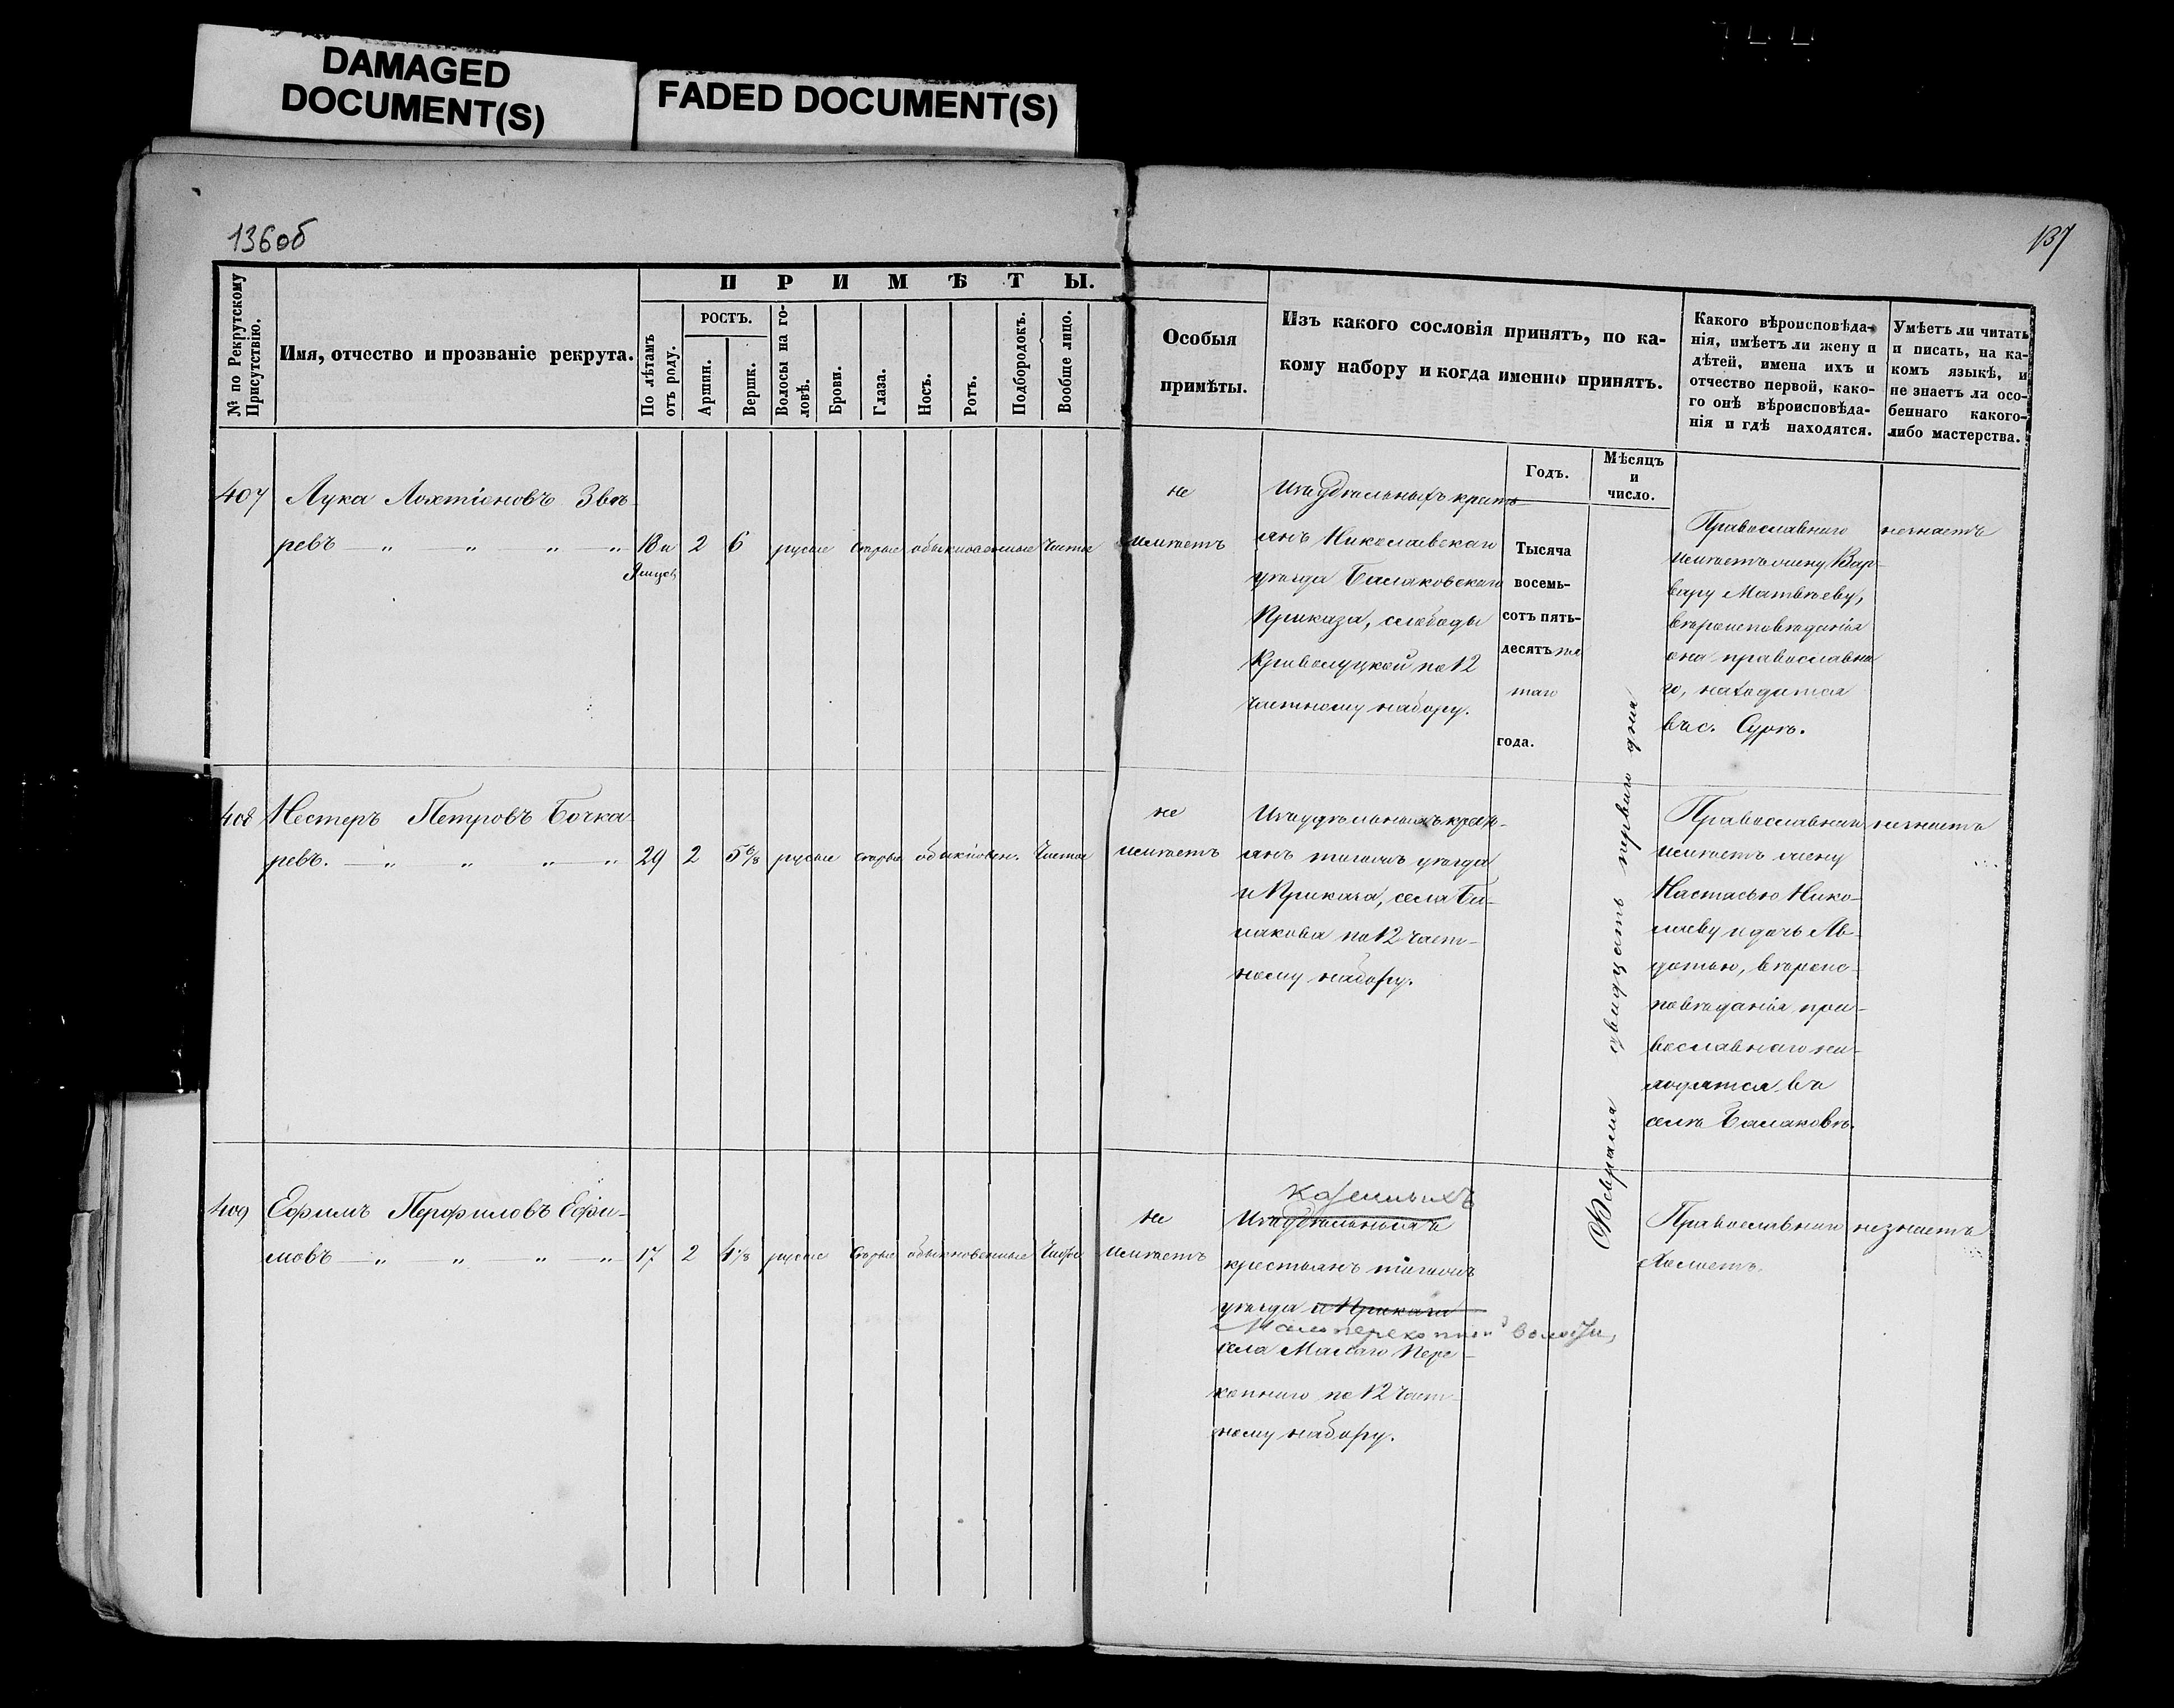 DAMAGED
DOCUMENT(S)
FADED DOCUMENT(S)
136об
137
№ по Рекрутскому
Присутствію.
Имя, отчество и прозваніе рекрута.
ПРИМѢТЫ.
По лѣтамъ
отъ роду.
РОСТЪ.
Аршин.
Вершк.
Волосы на го-
ловѣ.
Брови.
Глаза.
Носъ.
Ротъ.
Подбородокъ.
Вообще лицо.
Особыя
примѣты.
Изъ какого сословія принятъ, по ка-
кому набору и когда именно принятъ.
Годъ.
Мѣсяцъ
и
число.
Какого вѣроисповѣда-
нія, имѣетъ ли жену и
дѣтей, имена ихъ и
отчество первой, како-
го онѣ вѣроисповѣда-
нія и гдѣ находятся.
Умѣетъ ли читать
и писать, на ка-
комъ языкѣ, и
не знаетъ ли осо-
беннаго какого-
либо мастерства.
407
Лука Лохтіоновъ Звѣ-
ревъ — „ — „ „ — „
18 и
9 мѣсц
2
6
русые
сѣрые
обыкновенные
Чистое
не
имѣетъ
Изъ удѣльныхъ крест
янъ Николаевскаго
уѣзда Балаковскаго
Приказа, слободы
Криволуцкой по 12
частному набору.
Тысяча
восемь-
сотъ пять-
десятъ пя
таго
года.
Февраля двадцать перваго дня
Православнаго
имѣетъ жену Вар-
вару Матвѣеву,
вѣроисповѣданія
она православна
го, находится
въ с. Сурѣ.
незнаетъ
408
Нестеръ Петровъ Бочка
ревъ. — „ „ „ — „
29
2
5 6/8
русые
сѣрые
обыкновен.
Чистое
не
имѣетъ
Изъ удѣльныхъ крест-
янъ тогожъ уѣзда
и Приказа, села Ба-
лакова по 12 част-
ному набору.
Православнаго
имѣетъ жену
Настасью Нико-
лаеву и дочь Ав-
дотью, вѣроис-
повѣданія пра-
вославнаго на-
ходятся въ
селѣ Балаковѣ.
незнаетъ
409
Ефимъ Перфиловъ Ефи-
мовъ — „ — „ — „ — „
17
2
4 1/8
русые
сѣрые
обыкновенные
Чистое
не
имѣетъ
казенныхъ
Изъ удѣльныхъ
крестьянъ тогожъ
уѣзда и Приказа
Малоперекопной волости,
села Малаго Пере-
копнаго по 12 част-
ному набору.
Православнаго
Холостъ.
незнаетъ